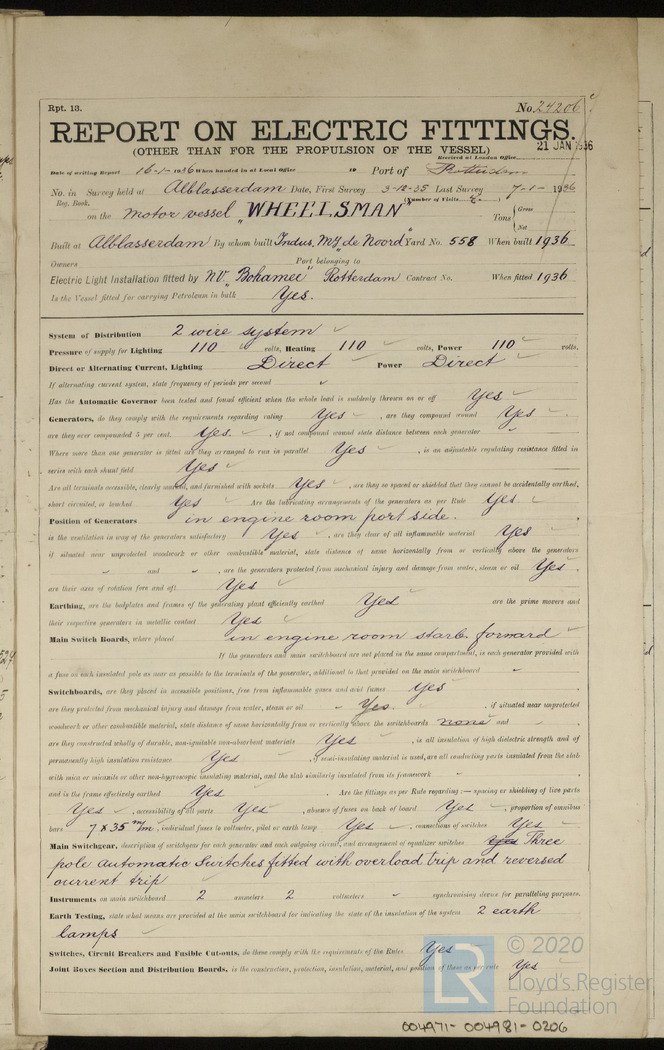 Rpt. 13.
No. 24206
REPORT ON ELECTRIC FITTINGS.
(OTHER THAN FOR THE PROPULSION OF THE VESSEL)
21 JAN 1936
Received at London Office
Date of writing Report 16-1-1936 When handed in at Local Office 19 Port of Rotterdam
No. in Survey held at Alblasserdam Date, First Survey 3-12-35 Last Survey 7-1-1936
Reg. Book. (Number of Visits 4.)
on the motor vessel "WHEELSMAN" Tons { Gross Net
Built at Alblasserdam By whom built Indus. My "de Noord" Yard No. 558 When built 1936
Owners Port belonging to
Electric Light Installation fitted by N.V. "Bohamee" Rotterdam Contract No. When fitted 1936
Is the Vessel fitted for carrying Petroleum in bulk Yes.
System of Distribution 2 wire system
Pressure of supply for Lighting 110 volts, Heating 110 volts, Power 110 volts.
Direct or Alternating Current, Lighting Direct Power Direct
If alternating current system, state frequency of periods per second
Has the Automatic Governor been tested and found efficient when the whole load is suddenly thrown on or off Yes.
Generators, do they comply with the requirements regarding rating Yes, are they compound wound Yes
are they over compounded 5 per cent. Yes., if not compound wound state distance between each generator
Where more than one generator is fitted are they arranged to run in parallel Yes, is an adjustable regulating resistance fitted in
series with each shunt field Yes
Are all terminals accessible, clearly marked, and furnished with sockets Yes, are they so spaced or shielded that they cannot be accidentally earthed,
short circuited, or touched Yes Are the lubricating arrangements of the generators as per Rule Yes.
Position of Generators in engine room port side.
is the ventilation in way of the generators satisfactory Yes, are they clear of all inflammable material Yes
if situated near unprotected woodwork or other combustible material, state distance of same horizontally from or vertically above the generators
and , are the generators protected from mechanical injury and damage from water, steam or oil Yes.
are their axes of rotation fore and aft Yes
Earthing, are the bedplates and frames of the generating plant efficiently earthed Yes are the prime movers and
their respective generators in metallic contact Yes
Main Switch Boards, where placed in engine room starb. forward
If the generators and main switchboard are not placed in the same compartment, is each generator provided with
a fuse on each insulated pole as near as possible to the terminals of the generator, additional to that provided on the main switchboard
Switchboards, are they placed in accessible positions, free from inflammable gases and acid fumes Yes
are they protected from mechanical injury and damage from water, steam or oil Yes. , if situated near unprotected
woodwork or other combustible material, state distance of same horizontally from or vertically above the switchboards none and
are they constructed wholly of durable, non-ignitable non-absorbent materials Yes , is all insulation of high dielectric strength and of
permanently high insulation resistance Yes , if semi-insulating material is used, are all conducting parts insulated from the slab
with mica or micanite or other non-hygroscopic insulating material, and the slab similarly insulated from its framework
and is the frame effectively earthed Yes. Are the fittings as per Rule regarding:— spacing or shielding of live parts
Yes, accessibility of all parts Yes, absence of fuses on back of board Yes, proportion of omnibus
bars 7 X 35 m/m, individual fuses to voltmeter, pilot or earth lamp Yes, connections of switches Yes
Main Switchgear, description of switchgear for each generator and each outgoing circuit, and arrangement of equalizer switches Yes Three
pole automatic switches fitted with overload trip and reversed
current trip
Instruments on main switchboard 2 ammeters 2 voltmeters synchronising device for paralleling purposes.
Earth Testing, state what means are provided at the main switchboard for indicating the state of the insulation of the system 2 earth
lamps
Switches, Circuit Breakers and Fusible Cut-outs, do these comply with the requirements of the Rules Yes
Joint Boxes Section and Distribution Boards, is the construction, protection, insulation, material, and position of these as per rule Yes
LR
© 2020
Lloyd's Register
Foundation
004971-004981-0206